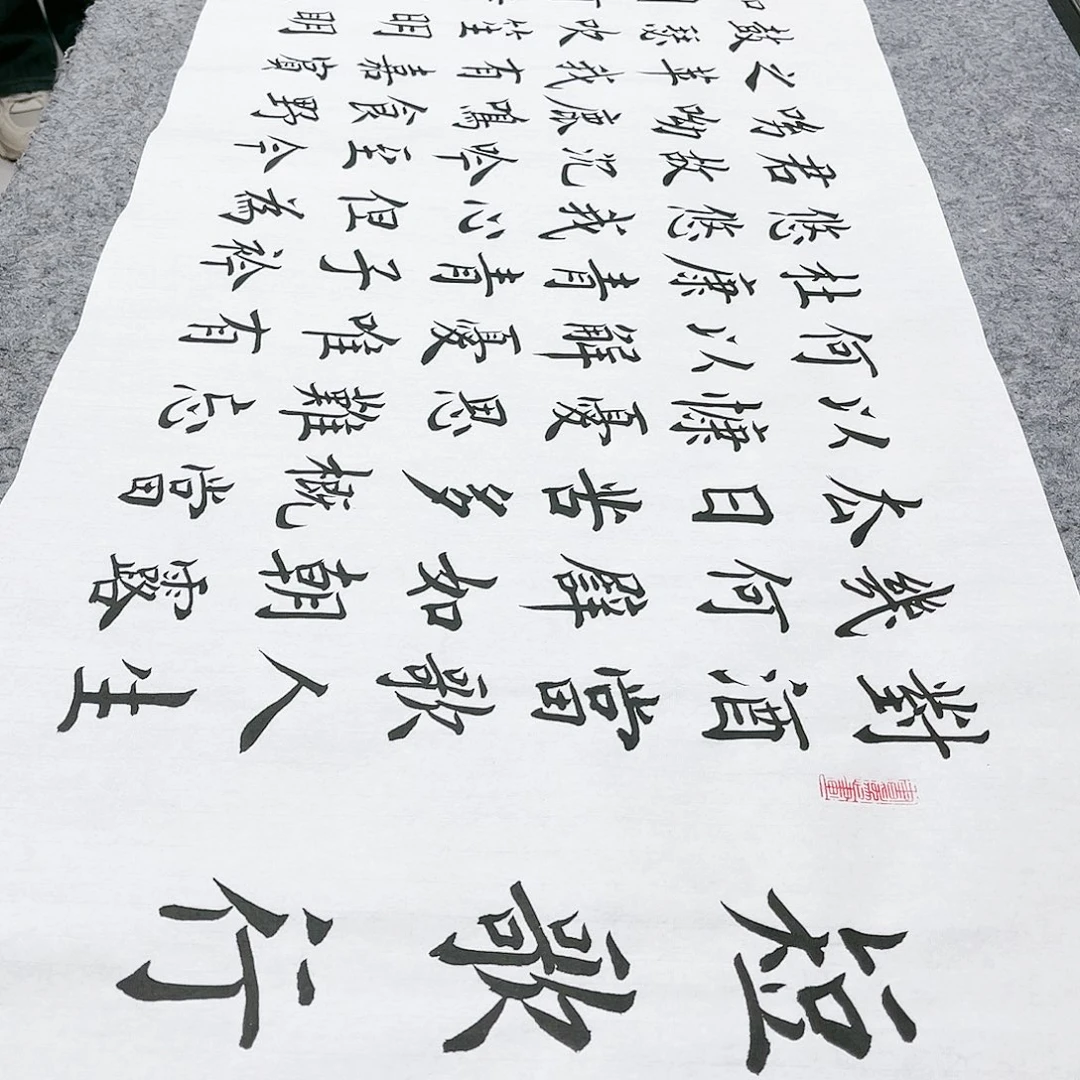 短歌行
對酒當歌人生
幾何譬如朝露
去日苦多概當
以慷憂思難忘
何以解憂唯有
杜康青青子衿
悠悠我心但為
君故沉吟至今
呦呦鹿鳴食野
之苹我有嘉賓
鼓瑟吹笙明明